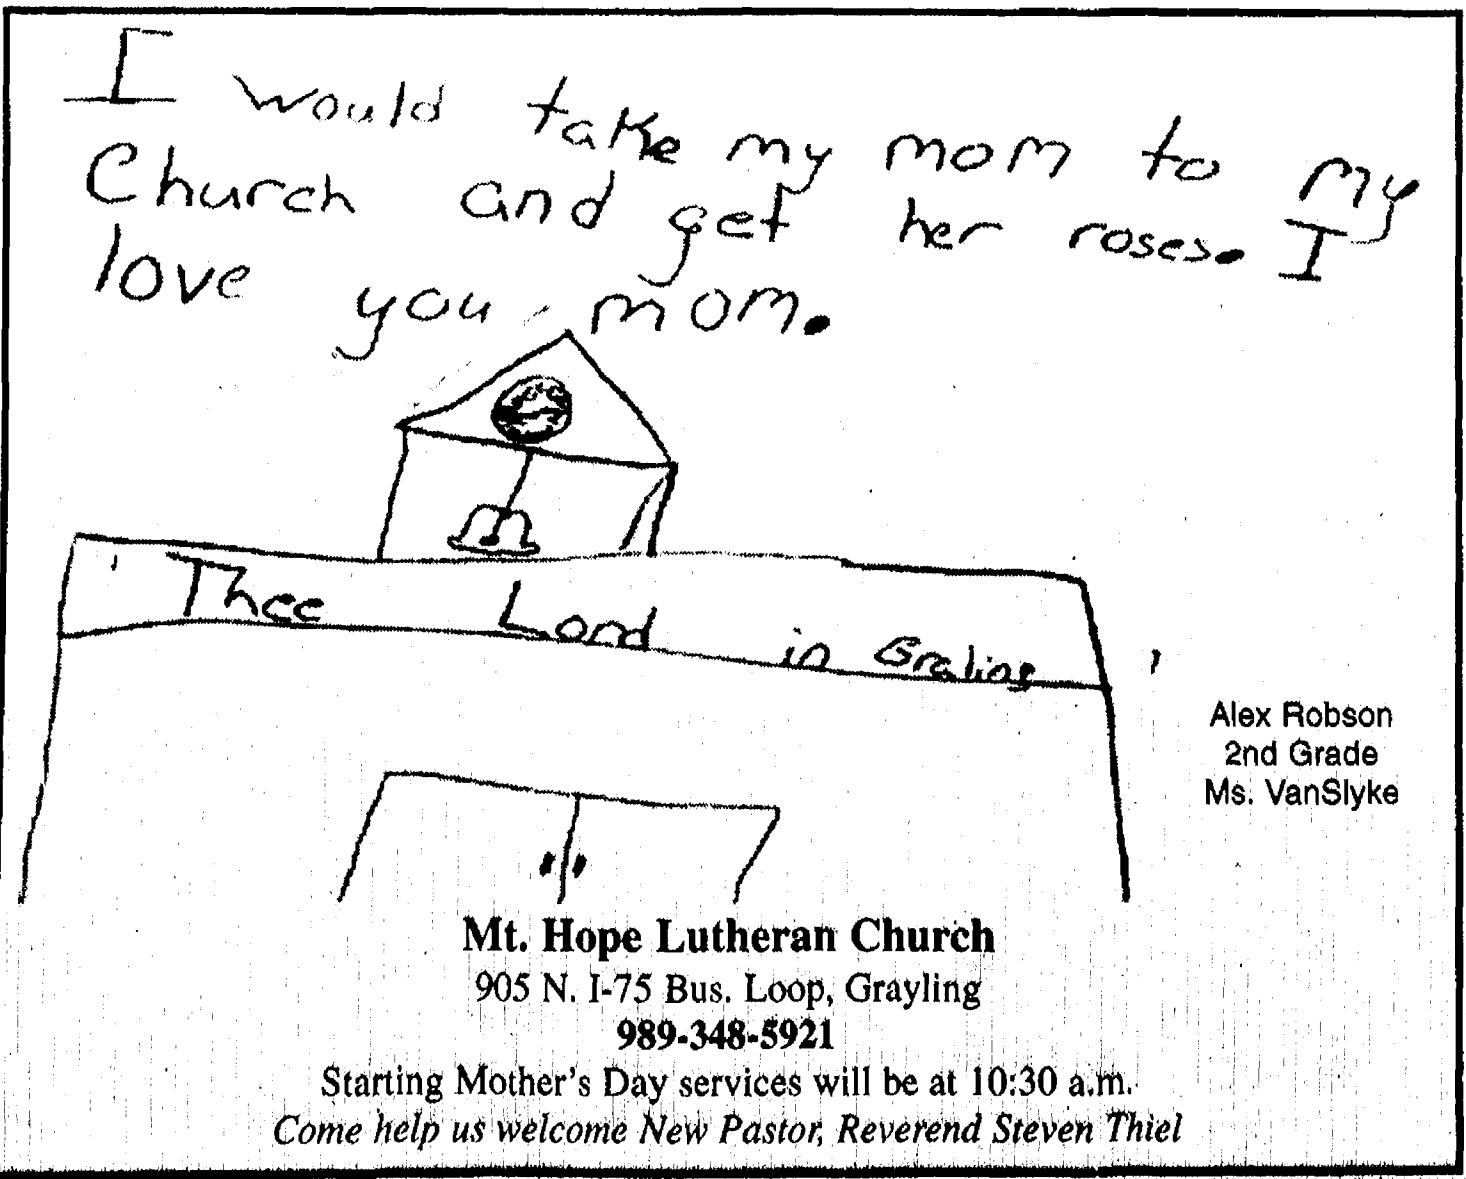 I would take my mom to my
Church and get her roses. I
love you mom.
Thee Lord in Graling
Alex Robson
2nd Grade
Ms. VanSlyke
Mt. Hope Lutheran Church
905 N. I-75 Bus. Loop, Grayling
989-348-5921
Starting Mother's Day services will be at 10:30 a.m.
Come help us welcome New Pastor, Reverend Steven Thiel